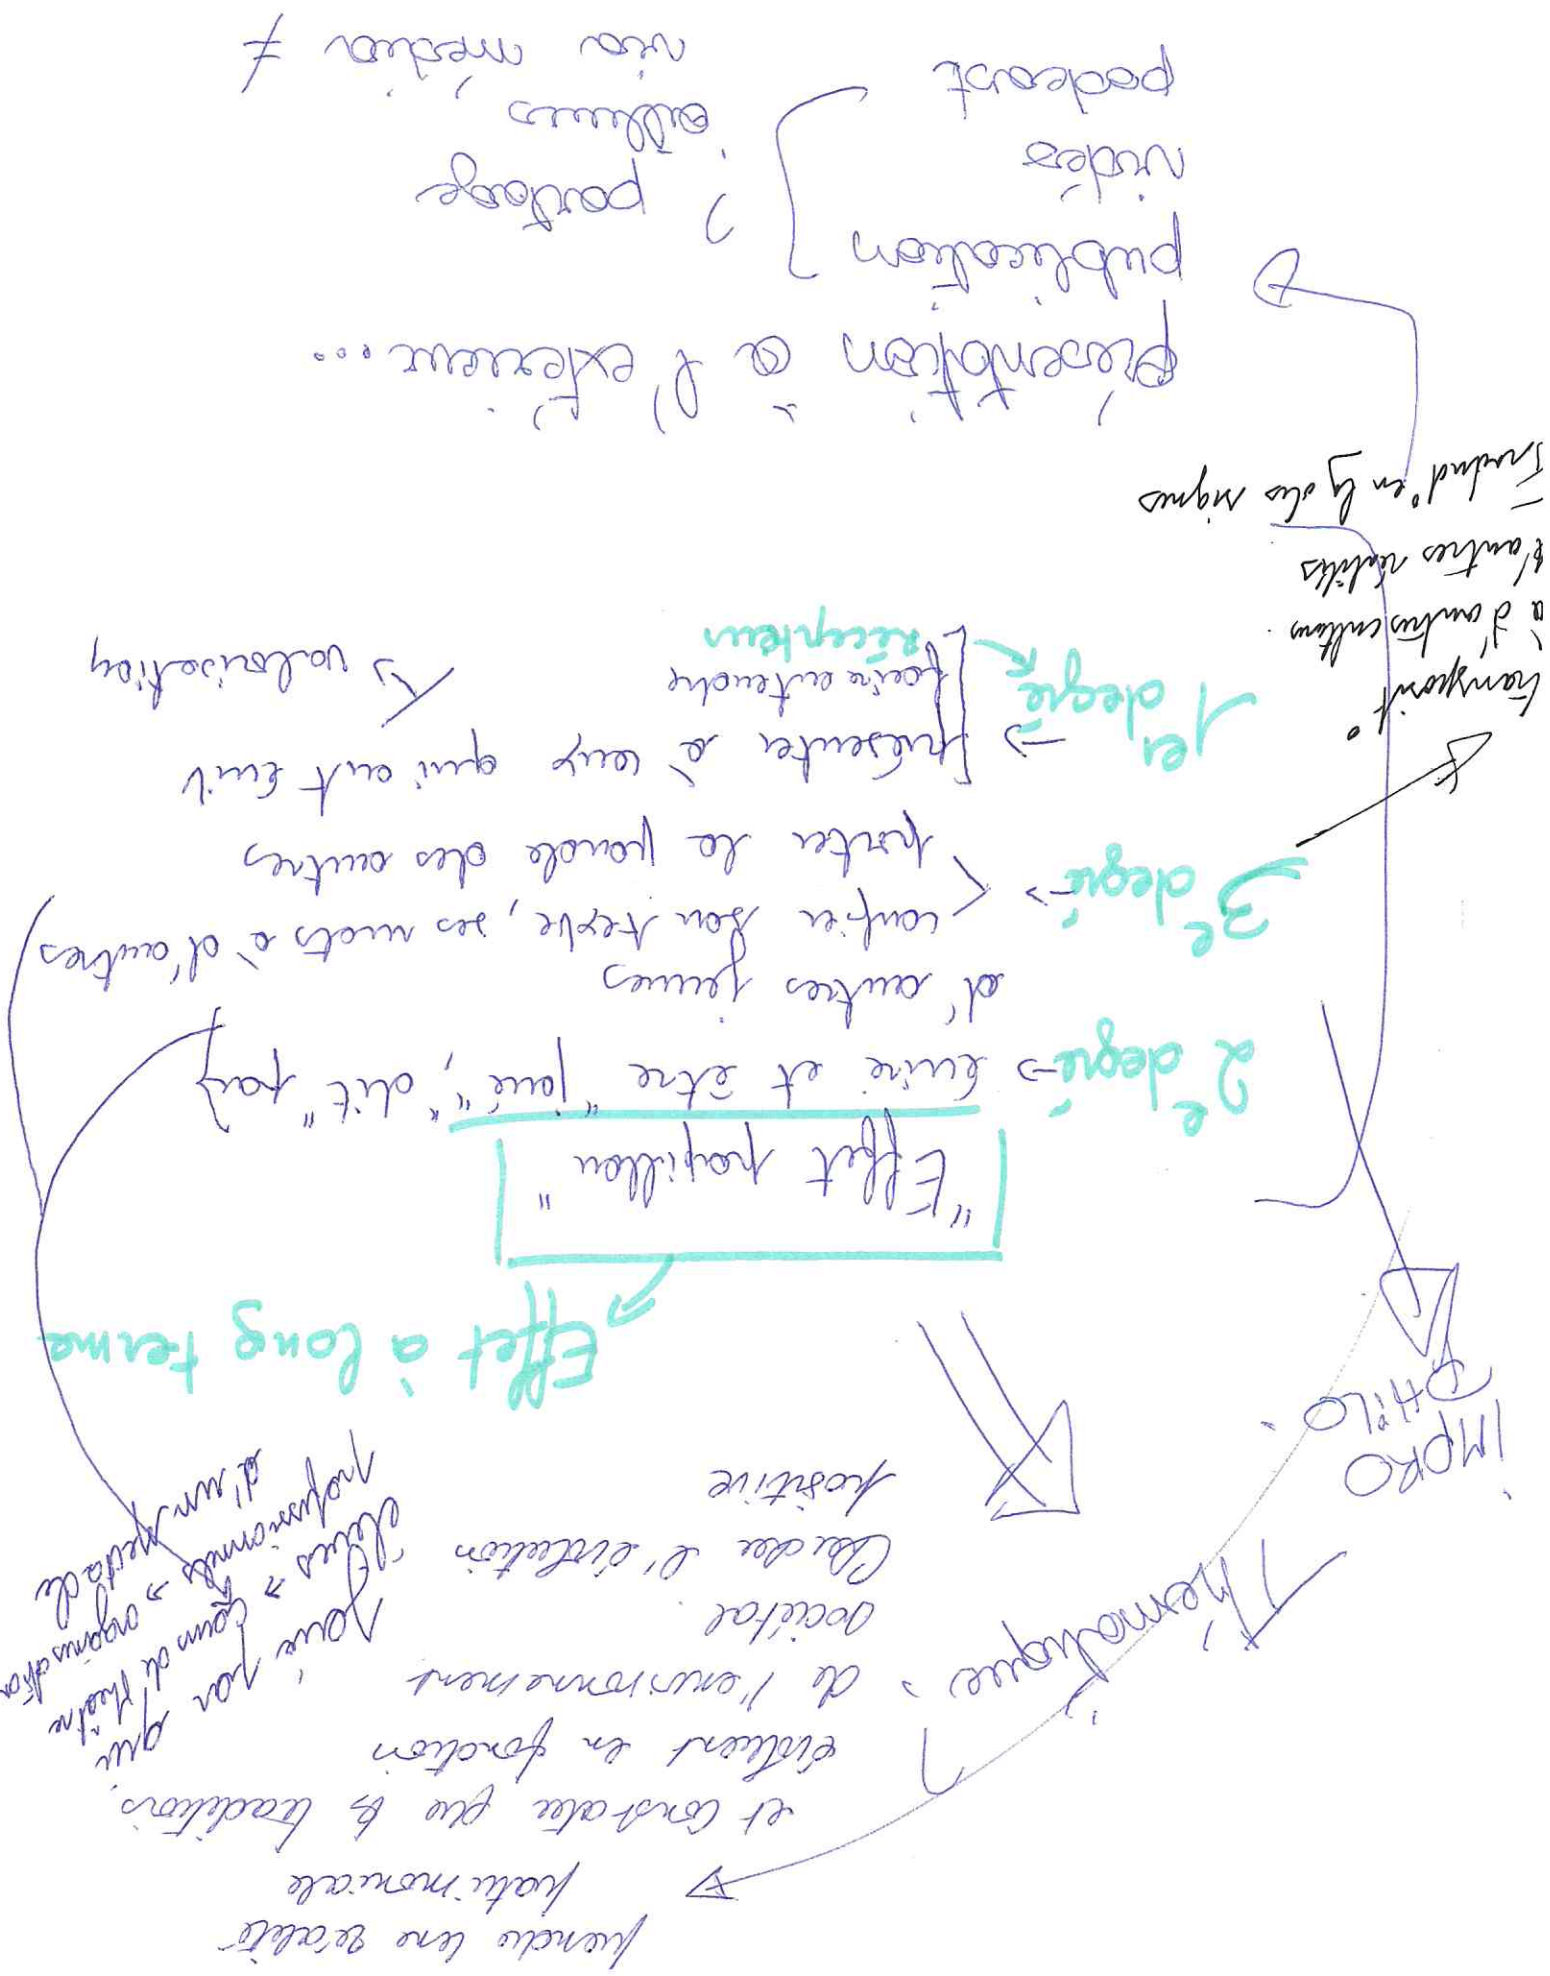 prendre une réalité
patrimoniale
et constater que les traditions
évoluent en fonction
de l'environnement
sociétal.
Chercher l'évolution
positive
Thématique :
IMPRO
PHILO.
joué par qui
élèves → cours de théâtre
professionnels → organisation
d'un spectacle
Effet à long terme
"Effet papillon"
2e degré → écrire et être "joué", "dit" par
d'autres jeunes
3e degré → confier son texte, ses mots à d'autres
porter la parole des autres
1er degré → présenter à ceux qui ont écrit
faire entendre
récepteurs
→ valorisation
transposit°
à d'autres cultures.
d'autres réalités
Traduct° en lg des signes
présentation à l'extérieur...
publication
vidéo
podcast
? partage
ailleurs
via média ≠